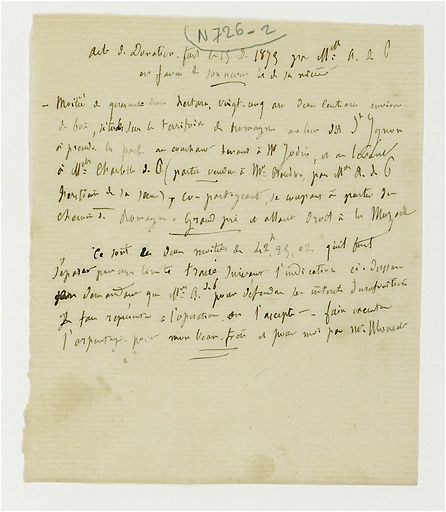 N726-2
acte de Donation fait le 15 1873 par Mlle A. de C
en faveur de son neveu et de sa nièce
- Moitié de quarante deux hectares, vingt-cinq ares deux centiares environ
de bois, situés sur le territoire de Romagne au lieu dit St
à prendre la part au couchant devant à Mr Jodin, et au levant
à Mlle Charlotte de C (partie vendue à Mr par Mlle A. de C
héritière de sa sœur), ce partageant, se coupera à partir du
chemin de Romagne à Grand pré et allant droit à la
Ce sont les deux moitiés de 42h, 25, 02 qu'il faut
séparer par une limite tracée suivant l'indication ci-dessus
demander que Mlle A. de C pour défendre ses intérêts d'usufruitière
se fasse représenter à l'opération ou l'accepte - faire exécuter
l'arpentage pour mon beau-frère et pour moi par Mr